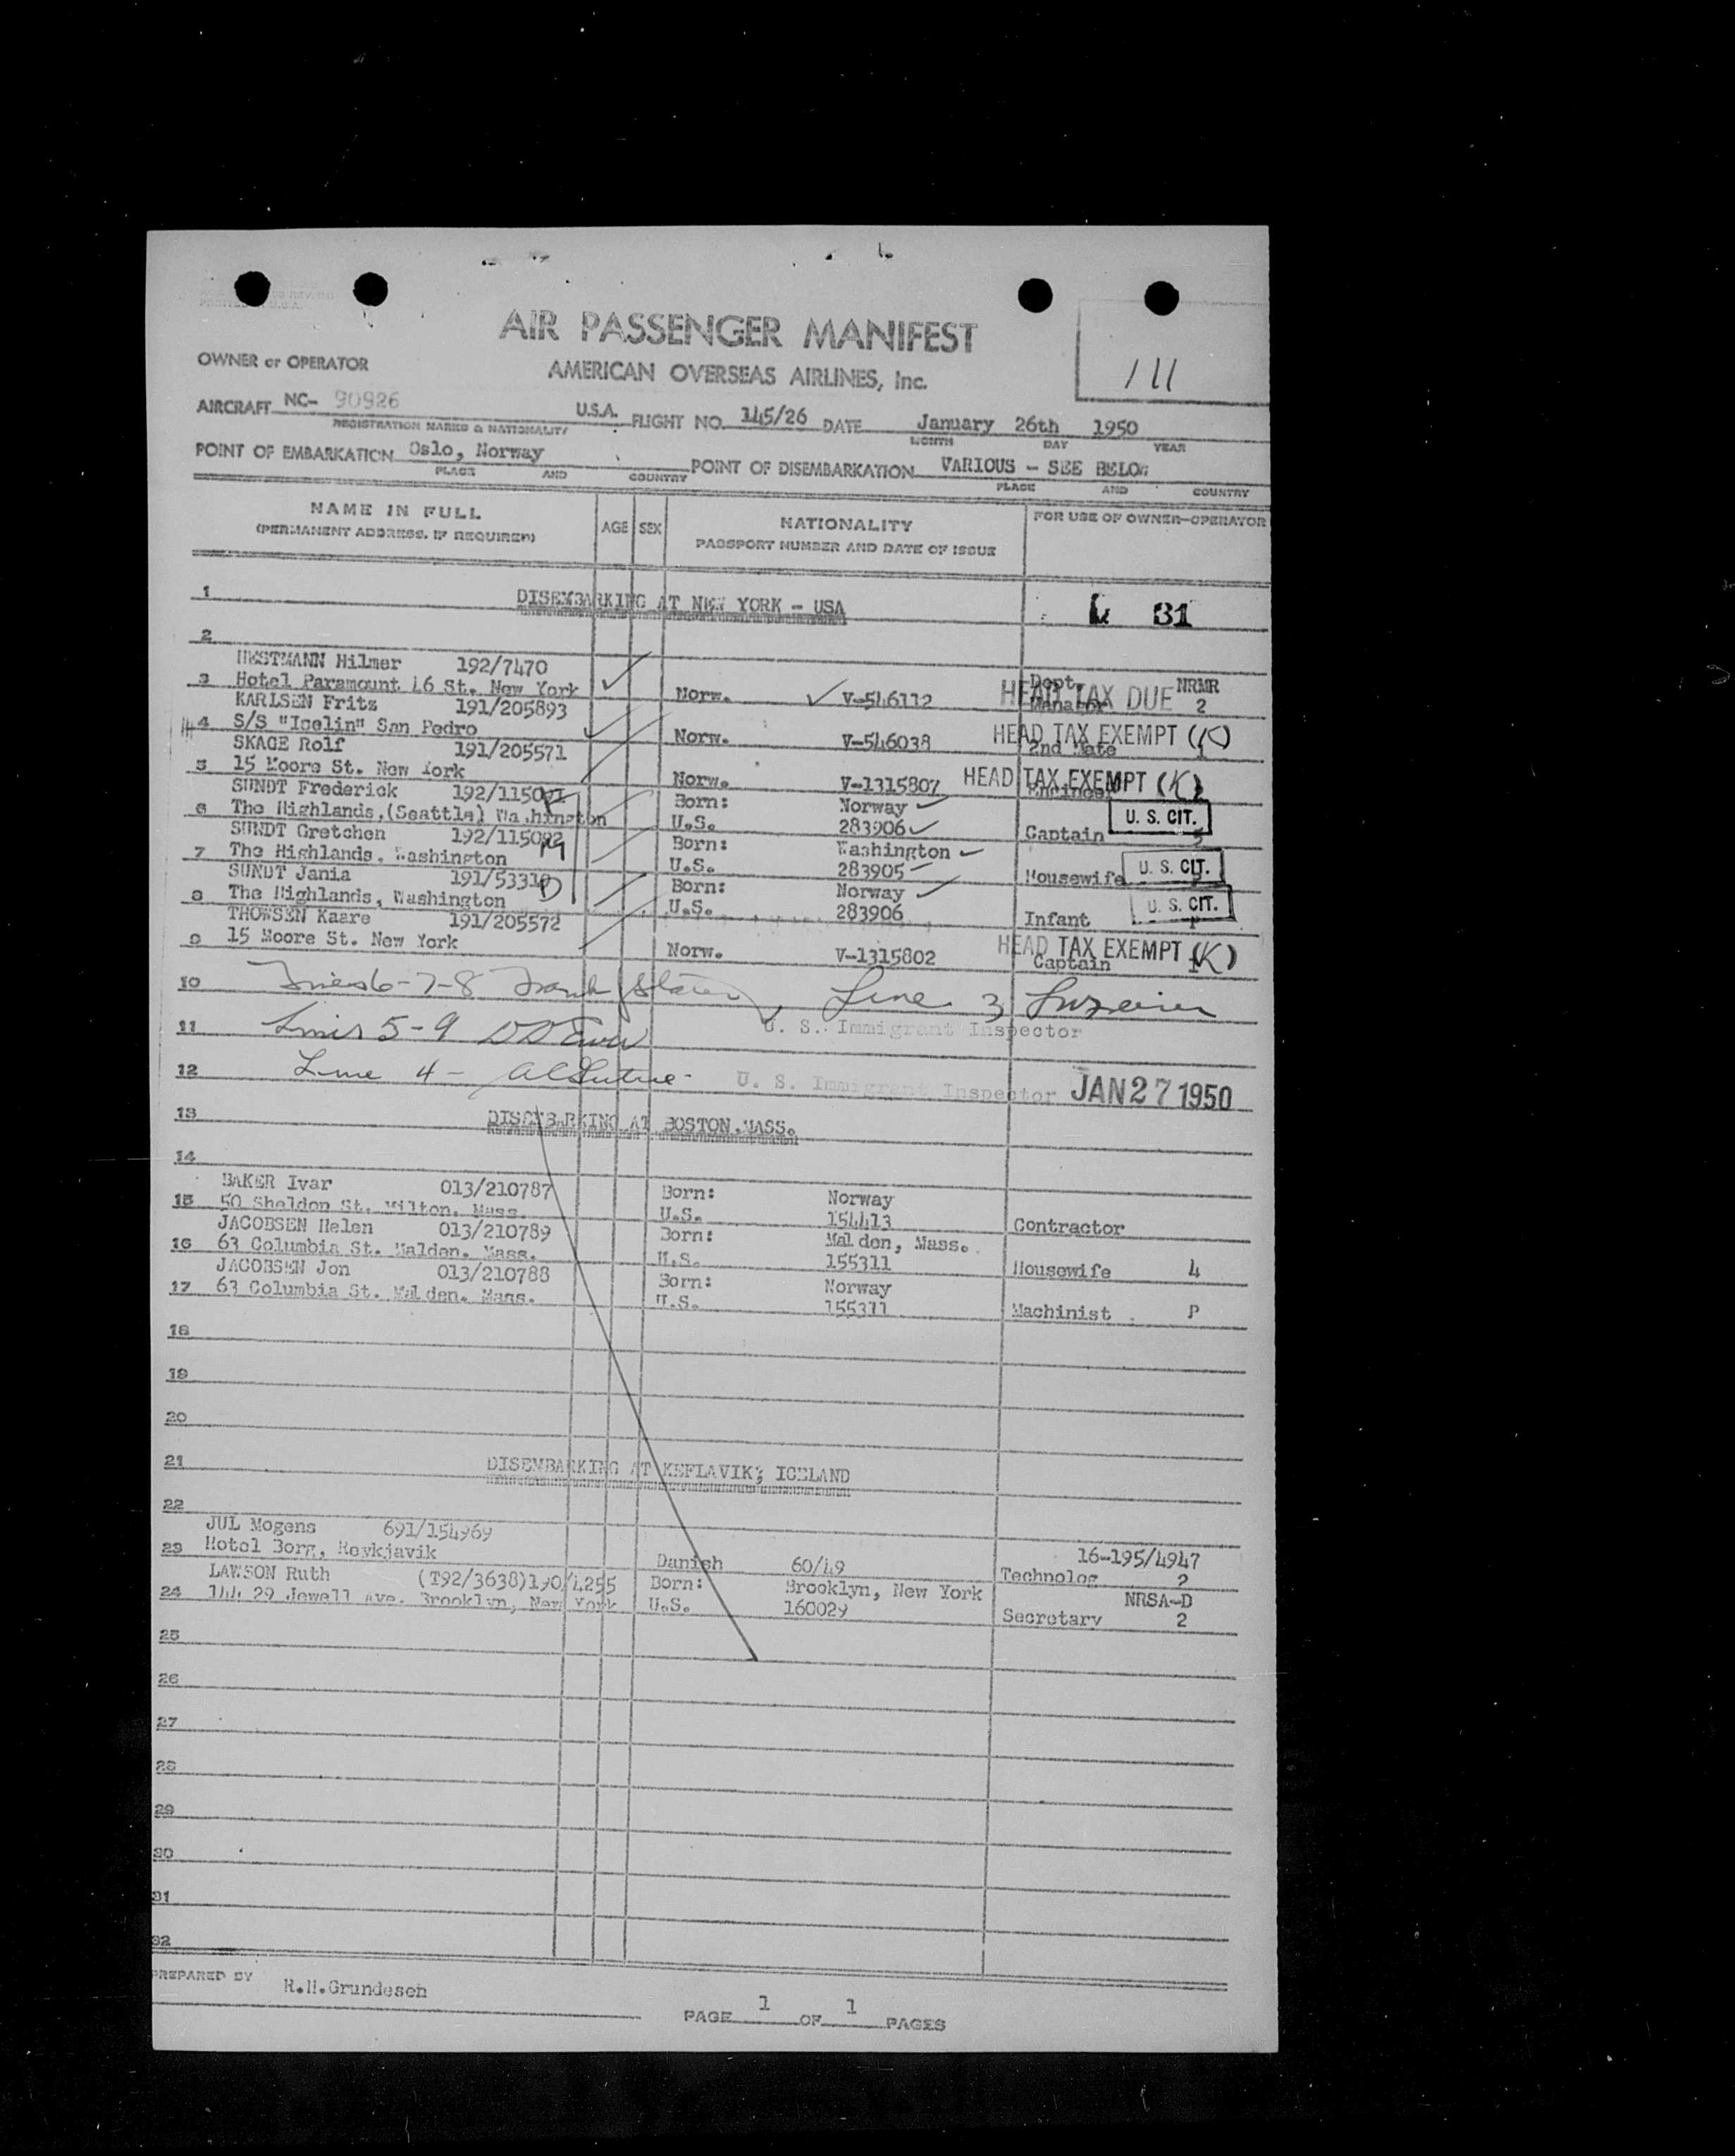 AIR PASSENGER MANIFEST
111
OWNER or OPERATOR
AMERICAN OVERSEAS AIRLINES, Inc.
AIRCRAFT NC- 90926 U.S.A. FLIGHT NO. 145/26 DATE January 26th 1950
REGISTRATION MARKS & NATIONALITY MONTH DAY YEAR
POINT OF EMBARKATION Oslo, Norway POINT OF DISEMBARKATION VARIOUS - SEE BELOW
PLACE AND COUNTRY PLACE AND COUNTRY
NAME IN FULL AGE SEX NATIONALITY FOR USE OF OWNER-OPERATOR
(PERMANENT ADDRESS, IF REQUIRED) PASSPORT NUMBER AND DATE OF ISSUE
1 DISEMBARKING AT NEW YORK - USA 31
2
HESTMANN Hilmer 192/7470 Dept. NRMR
3 Hotel Paramount 46 St. New York Norw. V-546112 Manager HEAD TAX DUE 2
KARLSEN Fritz 191/205893
4 S/S "Icelin" San Pedro Norw. V-546038 2nd Mate HEAD TAX EXEMPT (K)
SKAGE Rolf 191/205571
5 15 Moore St. New York Norw. V-1315807 Engineer HEAD TAX EXEMPT (K)
SUNDT Frederick 192/115091 Born: Norway
6 The Highlands, (Seattle) Washington U.S. 283906 Captain U. S. CIT.
SUNDT Gretchen 192/115092 Born: Washington
7 The Highlands, Washington U.S. 283905 Housewife U. S. CIT.
SUNDT Jania 191/53310 Born: Norway
8 The Highlands, Washington U.S. 283906 Infant U. S. CIT.
THOWSEN Kaare 191/205572
9 15 Moore St. New York Norw. V-1315802 Captain HEAD TAX EXEMPT (K)
10 Lines 6-7-8 Frank Line 3
11 Lines 5-9 U. S. Immigrant Inspector
12 Line 4 - U. S. Immigrant Inspector JAN 27 1950
13 DISEMBARKING AT BOSTON.MASS.
14
BAKER Ivar 013/210787 Born: Norway
15 50 Sheldon St. Milton. Mass. U.S. 154413 Contractor
JACOBSEN Helen 013/210789 Born: Malden, Mass.
16 63 Columbia St. Malden. Mass. U.S. 155311 Housewife 4
JACOBSEN Jon 013/210788 Born: Norway
17 63 Columbia St. Malden. Mass. U.S. 155311 Machinist P
18
19
20
21 DISEMBARKING AT KEFLAVIK, ICELAND
22
JUL Mogens 691/154969 16-195/4947
23 Hotel Borg, Reykjavik Danish 60/49 Technolog 2
LAWSON Ruth (T92/3638)190/4255 Born: Brooklyn, New York NRSA-D
24 144 29 Jewell Ave. Brooklyn, New York U.S. 160029 Secretary 2
25
26
27
28
29
30
31
32
PREPARED BY R.H.Grundesen
PAGE 1 OF 1 PAGES